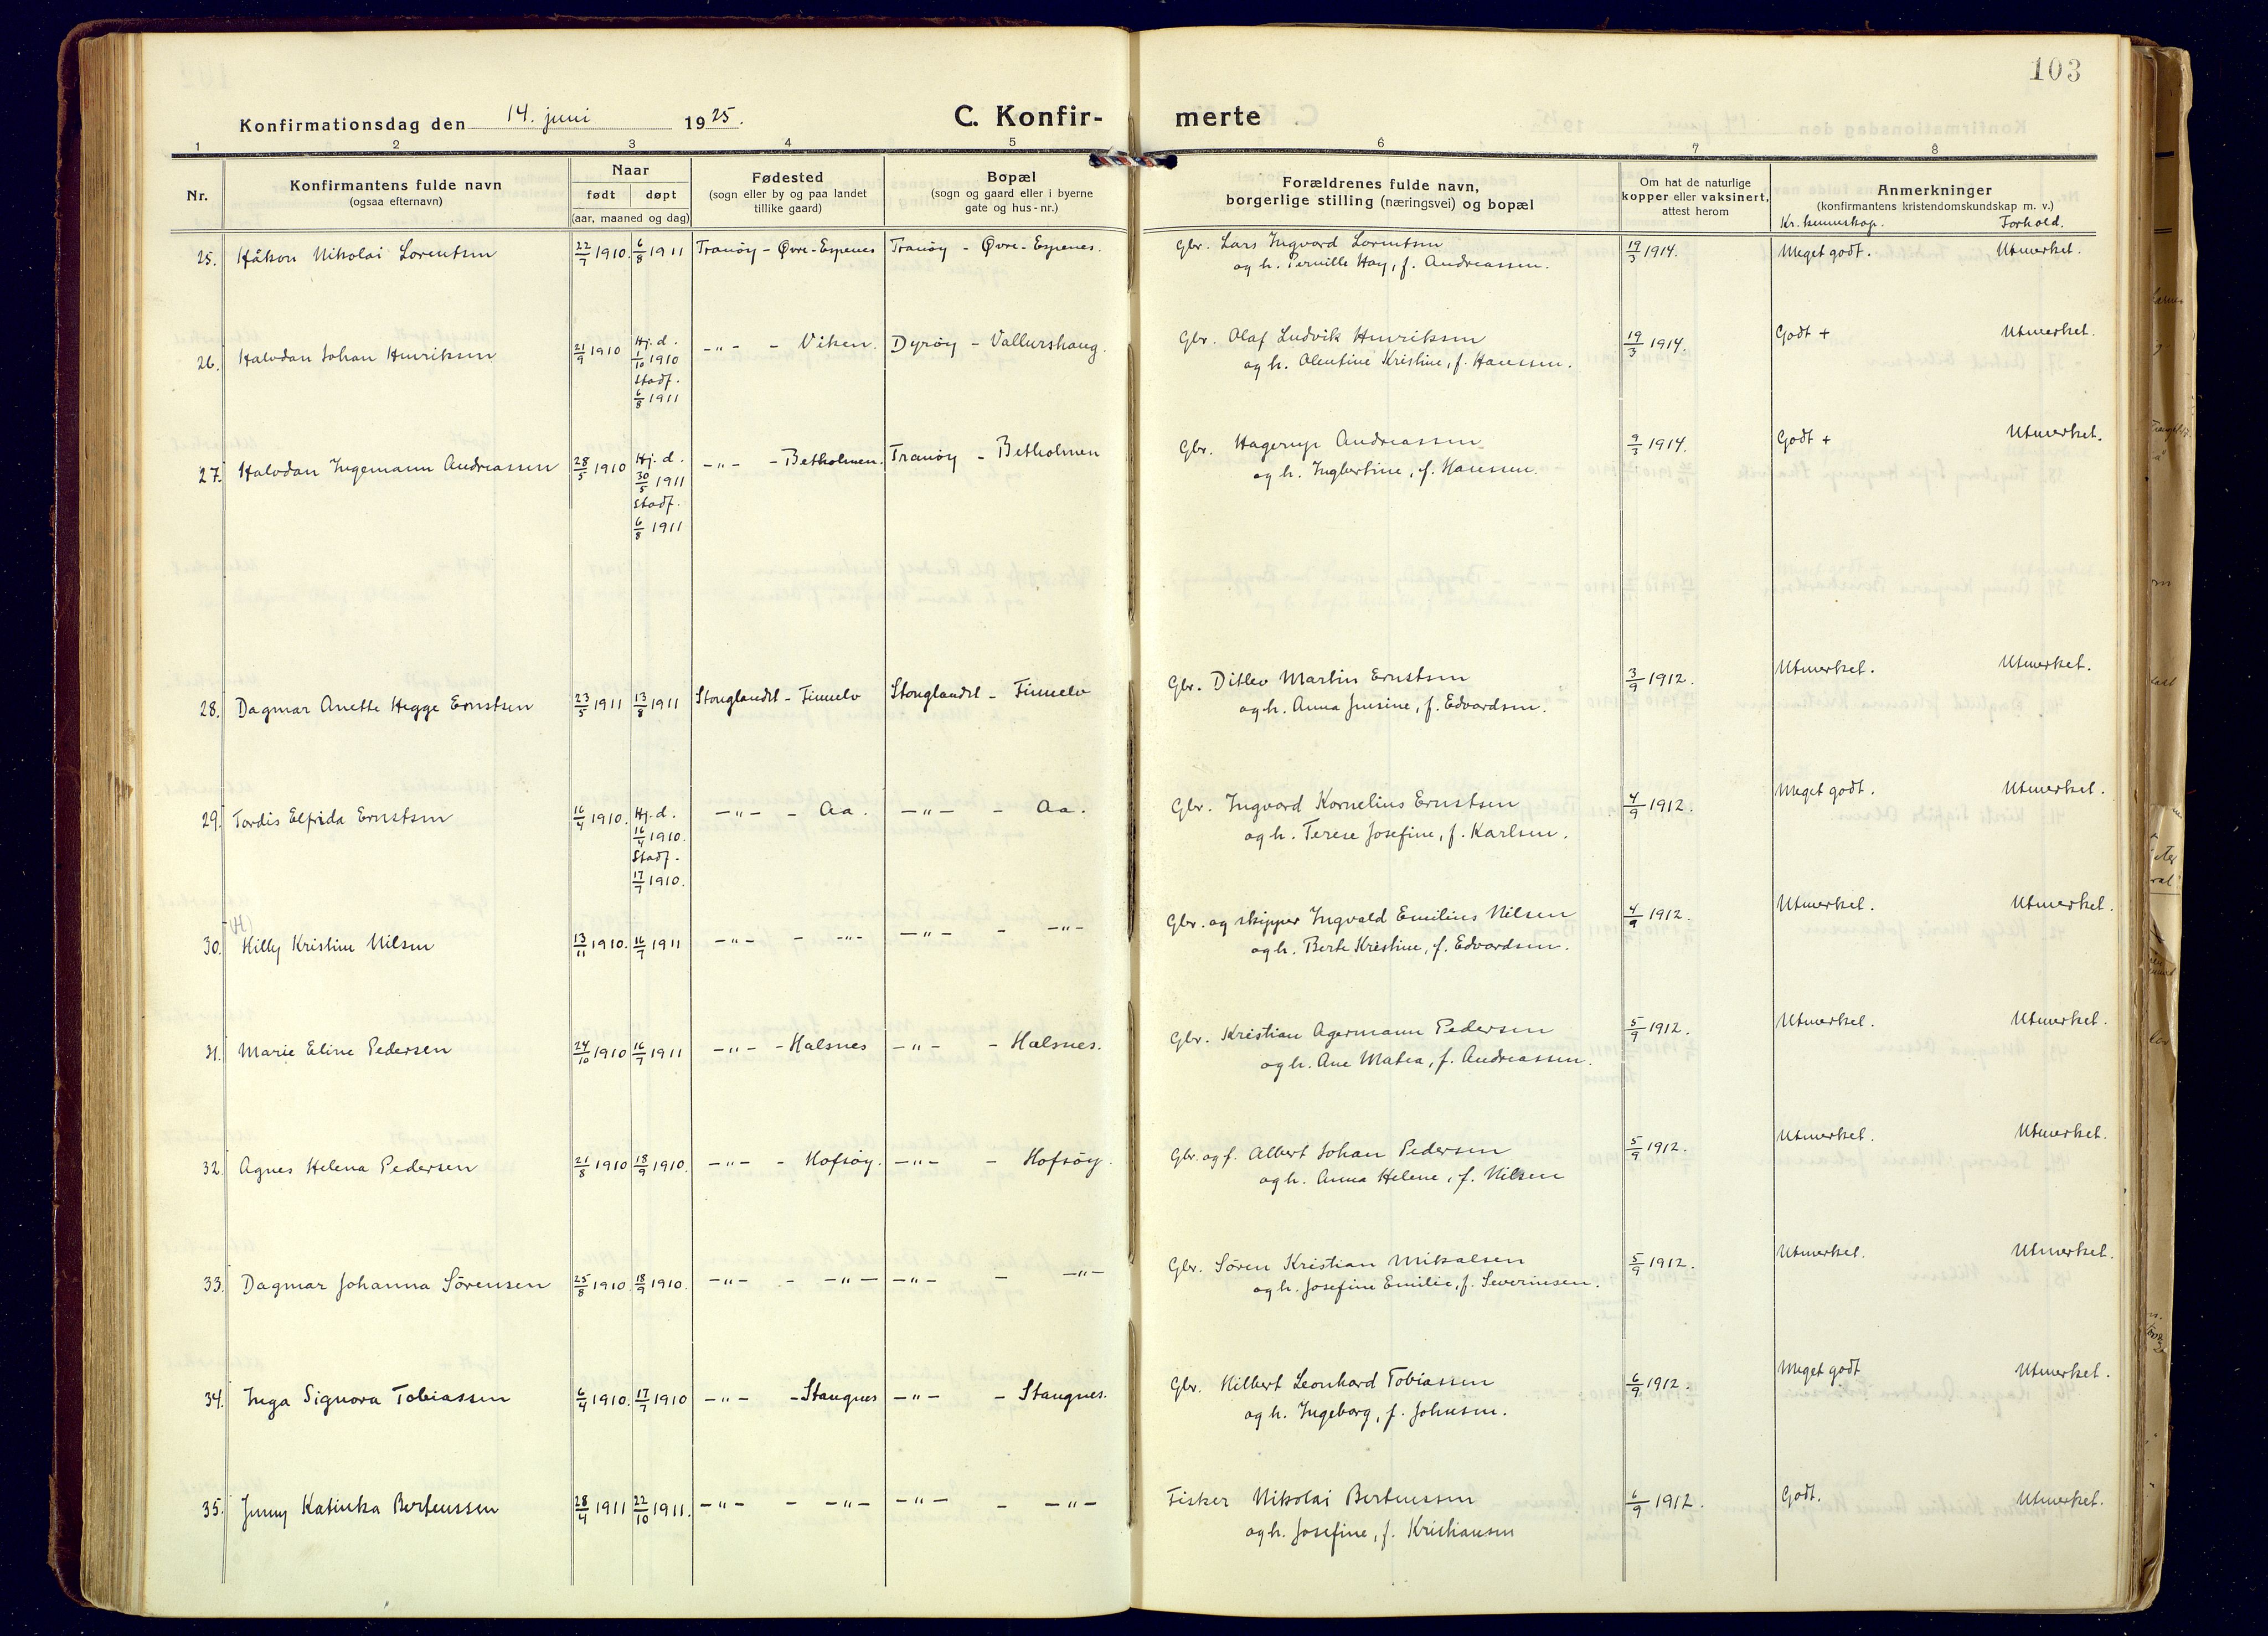 103
Konfirmationsdag den 14. juni 1925.
C. Konfir-
merte
1 2 3 4 5 6 7 8
Nr.
Konfirmantens fulde navn
(ogsaa efternavn)
Naar
født døpt
(aar, maaned og dag)
Fødested
(sogn eller by og paa landet
tillike gaard)
Bopæl
(sogn og gaard eller i byerne
gate og hus-nr.)
Forældrenes fulde navn,
borgerlige stilling (næringsvei) og bopæl
Om hat de naturlige
kopper eller vaksinert,
attest herom
Anmerkninger
(konfirmantens kristendomskundskap m. v.)
Kr. kunnskap. Forhold.
25. Håkon Nikolai Lorentsen 22/7 1910. 6/8 1911 Tranöy - Øvre-Espenes Tranöy - Øvre-Espenes. Gbr. Lars Ingvard Lorentsen 19/3 1914. Meget godt. Utmerket.
og h. Pernille Hay, f. Andreassen.
26. Halvdan Johan Henriksen 21/9 1910 Hj. d. -"- - Viken. Dyröy - Vallurshaug. Gbr. Olaf Ludvik Henriksen 19/3 1914. Godt + Utmerket.
1/10 1910 og h. Olentine Kristine, f. Hanssen.
Stadf.
6/8 1911
27. Halvdan Ingemann Andreassen 28/5 1910 Hj. d. -"- - Betholmen. Tranöy - Betholmen Gbr. Hagerup Andreassen 9/3 1914. Godt + Utmerket.
30/5 1911 og h. Ingbertine, f. Hanssen.
Stadf.
6/8 1911
28. Dagmar Anette Hegge Ernstsen 23/5 1911 13/8 1911 Stonglandet - Finnelv Stonglandet - Finnelv Gbr. Ditlev Martin Ernstsen 3/9 1912. Utmerket. Utmerket.
og h. Anna Jensine, f. Edvardsen.
29. Tordis Elfrida Ernstsen 16/4 1910. Hj. d. -"- - Aa. -"- - Aa. Gbr. Ingvard Kornelius Ernstsen 4/9 1912. Meget godt. Utmerket.
16/4 1910. og h. Terese Josefine, f. Karlsen.
Stadf.
17/7 1910.
(H)
30. Hilly Kristine Nilsen 13/11 1910. 16/7 1911 -"- - -"- -"- - -"- Gbr. og skipper Ingvald Emilius Nilsen 4/9 1912. Utmerket. Utmerket.
og h. Berte Kristine, f. Edvardsen.
31. Marie Eline Pedersen 24/10 1910 16/7 1911 -"- - Halsnes -"- - Halsnes. Gbr. Kristian Agermann Pedersen 5/9 1912. Utmerket. Utmerket.
og h. Ane Matea, f. Andreassen.
32. Agnes Helena Pedersen 21/8 1910 18/9 1910. -"- - Hofsöy. -"- - Hofsöy. Gbr. og f. Albert Johan Pedersen 5/9 1912. Utmerket. Utmerket.
og h. Anna Helene, f. Nilsen
33. Dagmar Johanna Sörensen 25/8 1910. 18/9 1910. -"- - -"- -"- - -"- Gbr. Sören Kristian Mikalsen 5/9 1912. Utmerket. Utmerket.
og h. Josefine Emilie, f. Severinsen.
34. Inga Signora Tobiassen 6/4 1910. 17/7 1910 -"- - Stangnes -"- - Stangnes. Gbr. Hilbert Leonhard Tobiassen 6/9 1912. Meget godt Utmerket.
og h. Ingeborg, f. Johnsen.
35. Jenny Katinka Berteussen 28/4 1911 22/10 1911. -"- - -"- -"- - -"- Fisker Nikolai Berteussen 6/9 1912. Godt. Utmerket.
og h. Josefine, f. Kristiansen